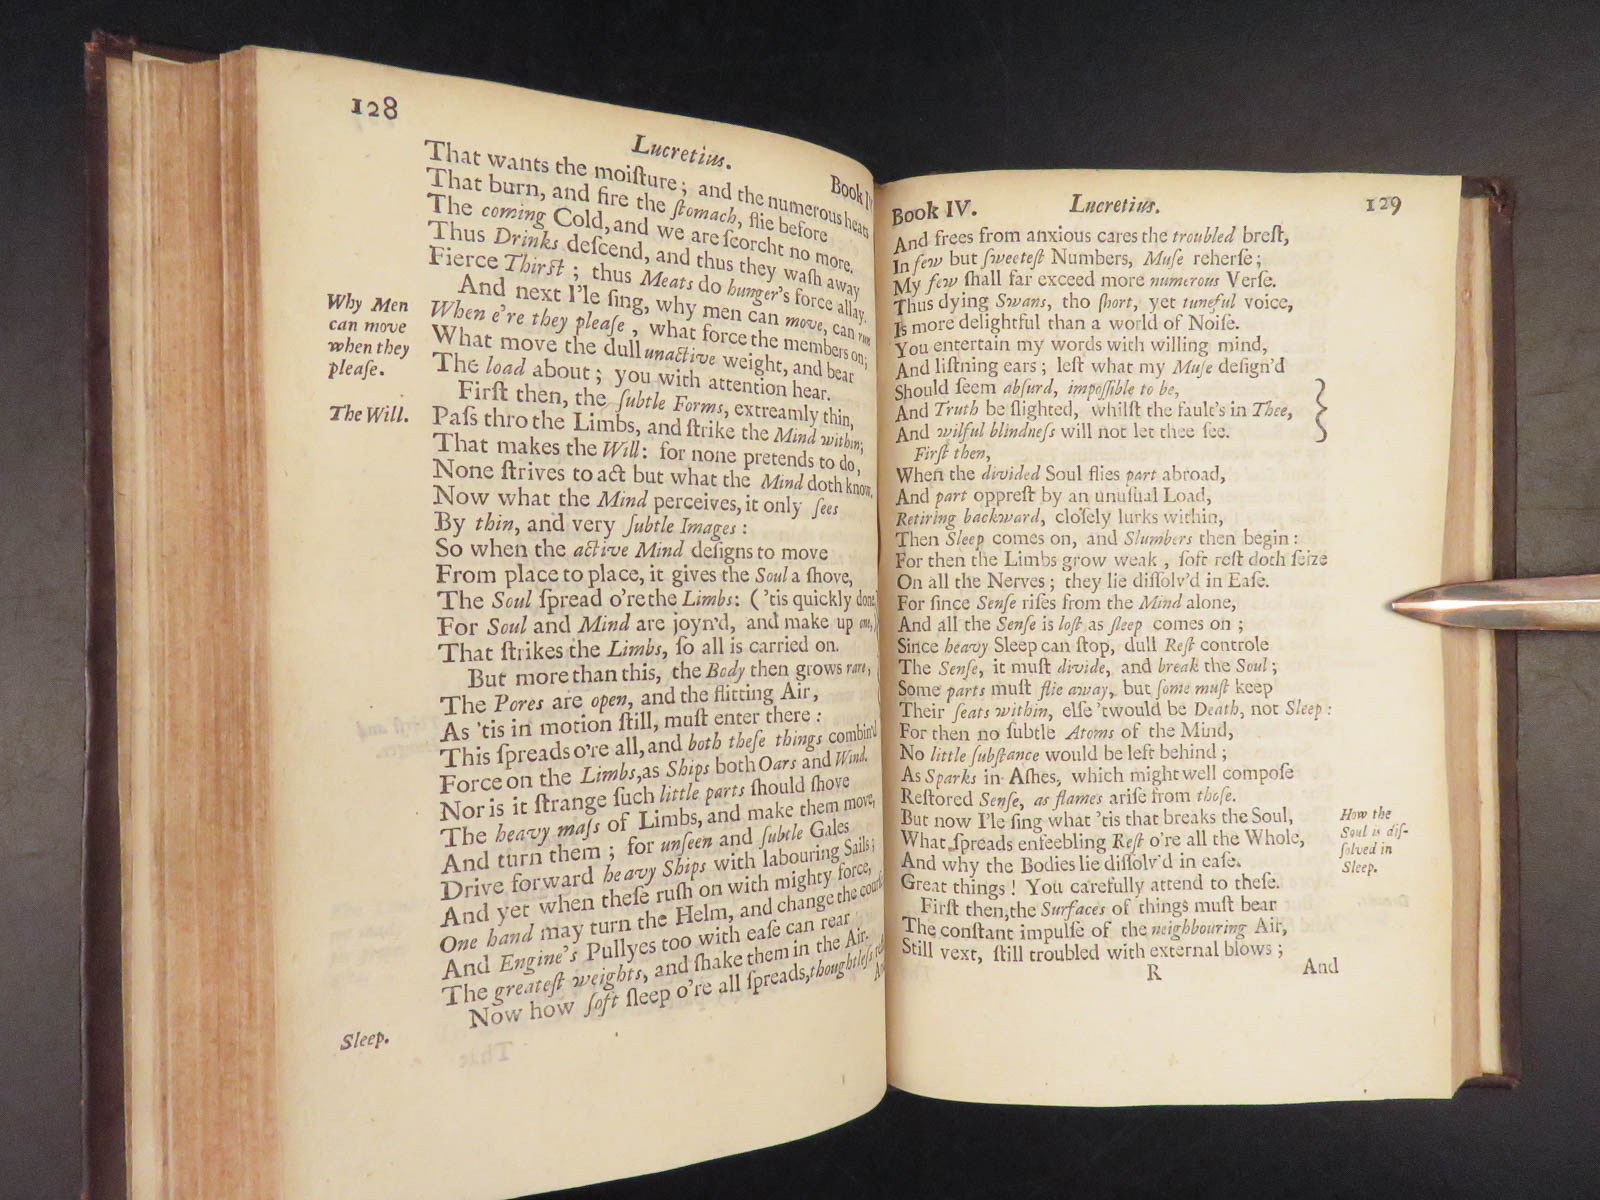 128
Lucretius.
Book IV
That wants the moiſture; and the numerous heats
That burn, and fire the ſtomach, flie before
The coming Cold, and we are ſcorcht no more.
Thus Drinks deſcend, and thus they waſh away
Fierce Thirſt; thus Meats do hunger's force allay.
And next I'le ſing, why men can move, can run
Why Men
can move
when they
pleaſe.
When e're they pleaſe, what force the members on;
What move the dull unactive weight, and bear
The load about; you with attention hear.
Firſt then, the ſubtle Forms, extreamly thin,
The Will.
Paſs thro the Limbs, and ſtrike the Mind within;
That makes the Will: for none pretends to do,
None ſtrives to act but what the Mind doth know,
Now what the Mind perceives, it only ſees
By thin, and very ſubtle Images:
So when the active Mind deſigns to move
From place to place, it gives the Soul a ſhove,
The Soul ſpread o're the Limbs: ('tis quickly done,
For Soul and Mind are joyn'd, and make up one,)
That ſtrikes the Limbs, ſo all is carried on.
But more than this, the Body then grows rare,
The Pores are open, and the flitting Air,
As 'tis in motion ſtill, muſt enter there:
This ſpreads o're all, and both theſe things combin'd
Force on the Limbs, as Ships both Oars and Wind.
Nor is it ſtrange ſuch little parts ſhould ſhove
The heavy maſs of Limbs, and make them move,
And turn them; for unſeen and ſubtle Gales
Drive forward heavy Ships with labouring Sails;
And yet when theſe ruſh on with mighty force,
One hand may turn the Helm, and change the courſe
And Engine's Pullyes too with eaſe can rear
The greateſt weights, and ſhake them in the Air.
Sleep.
Now how ſoft ſleep o're all ſpreads, thoughtleſs
Book IV.
Lucretius.
129
And frees from anxious cares the troubled breſt,
In few but ſweeteſt Numbers, Muſe reherſe;
My few ſhall far exceed more numerous Verſe.
Thus dying Swans, tho ſhort, yet tuneful voice,
Is more delightful than a world of Noiſe.
You entertain my words with willing mind,
And liſtning ears; leſt what my Muſe deſign'd
Should ſeem abſurd, impoſſible to be,
And Truth be ſlighted, whilſt the fault's in Thee,
And wilful blindneſs will not let thee ſee.
Firſt then,
When the divided Soul flies part abroad,
And part oppreſt by an unuſual Load,
Retiring backward, cloſely lurks within,
Then Sleep comes on, and Slumbers then begin:
For then the Limbs grow weak, ſoft reſt doth ſeize
On all the Nerves; they lie diſſolv'd in Eaſe.
For ſince Senſe riſes from the Mind alone,
And all the Senſe is loſt as ſleep comes on;
Since heavy Sleep can ſtop, dull Reſt controle
The Senſe, it muſt divide, and break the Soul;
Some parts muſt flie away, but ſome muſt keep
Their ſeats within, elſe 'twould be Death, not Sleep:
For then no ſubtle Atoms of the Mind,
No little ſubſtance would be left behind;
As Sparks in Aſhes, which might well compoſe
Reſtored Senſe, as flames ariſe from thoſe.
But now I'le ſing what 'tis that breaks the Soul,
How the
Soul is diſ-
ſolved in
Sleep.
What ſpreads enfeebling Reſt o're all the Whole,
And why the Bodies lie diſſolv'd in eaſe.
Great things! You carefully attend to theſe.
Firſt then, the Surfaces of things muſt bear
The conſtant impulſe of the neighbouring Air,
Still vext, ſtill troubled with external blows;
R
And